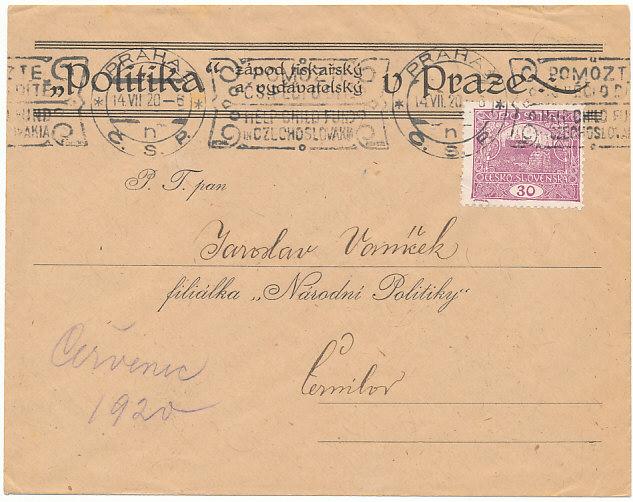 „Politika“ závod tiskařský
a vydavatelský v Praze
PRAHA
14 VII 20 - 6
n
Č. S. P.
POMOZTE
HELP CHILD FUND
IN CZECHOSLOVAKIA
PRAHA
14 VII 20
n
Č. S. P.
POMOZTE
CHILD FUND
CZECHOSLOVAKIA
ČESKO-SLOVENSKÁ
30
P. T. pan
Jaroslav Vaníček
filiálka „Národní Politiky“
Černilov
Červenec
1920